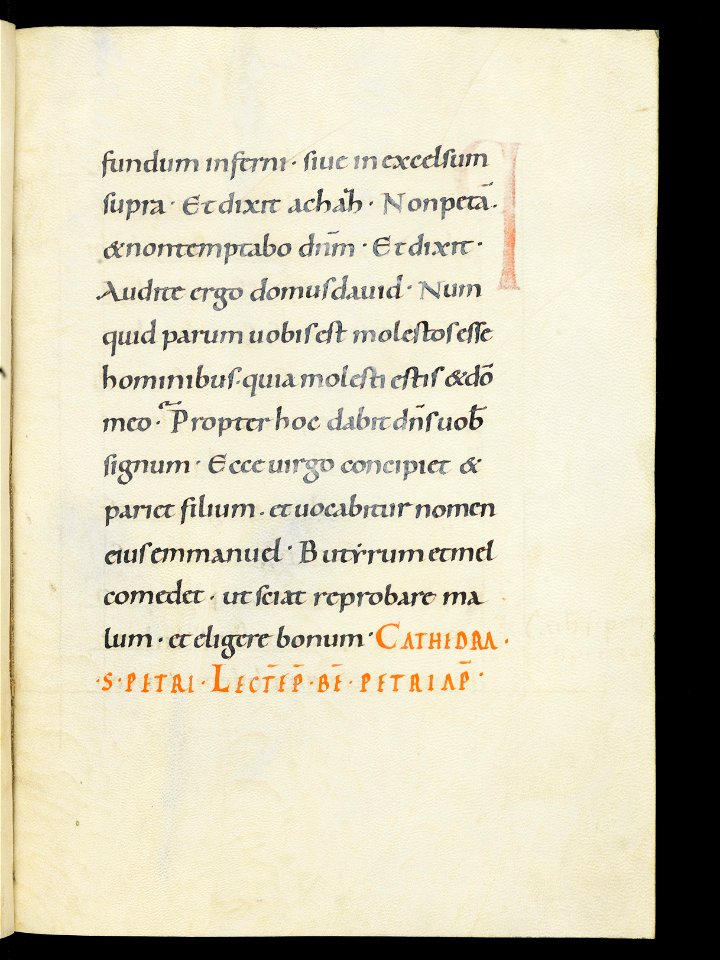 fundum inferni · siue in excelsum
supra · Et dixit achab · Non petā ·
& non temptabo dn̄m · Et dixit ·
Audite ergo domus dauid · Num
quid parum uobis est molestos esse
hominibus · quia molesti estis & dō
meo · Propter hoc dabit dn̄s uob̄
signum · Ecce uirgo concipiet &
pariet filium · et uocabitur nomen
eius emmanuel · Butẏrum et mel
comedet · ut sciat reprobare ma
lum · et eligere bonum · CATHEDRA ·
· S · PETRI · LECT̄ EP̄ · BĒ · PETRI AP̄ ·